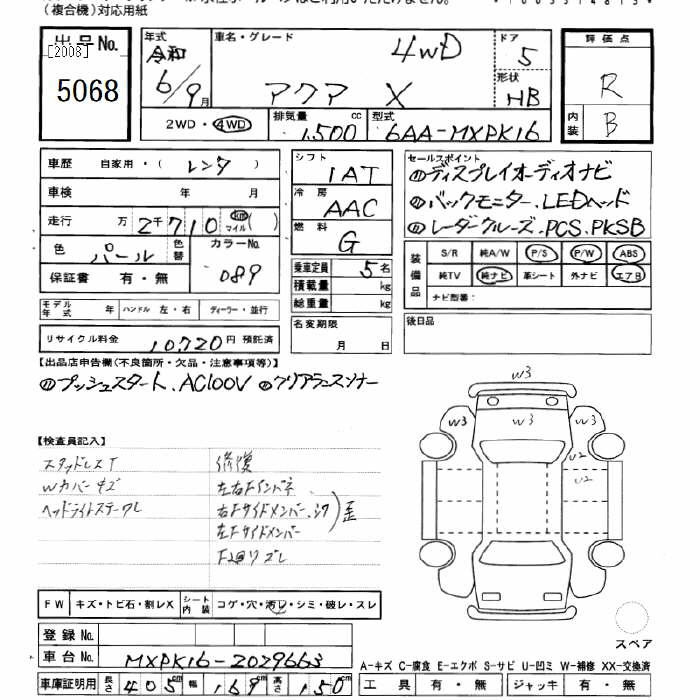 (複合機)対応用紙
出品No.
[2008]
5068
年式
令和
6/9月
車名・グレード
4WD
アクア X
ドア
5
形状
HB
評価点
R
内装
B
2WD・4WD
排気量 cc
1,500
型式
6AA-MXPK16
車歴 自家用・(レンタ)
車検 年 月
走行 万 2千710 km マイル( )
色 パール
色替
カラーNo.
089
保証書 有・無
モデル年式 年 ハンドル 左・右 ディーラー・並行
リサイクル料金 10,720円 預託済
シフト
1AT
冷房
AAC
燃料
G
乗車定員 5名
積載量 kg
総重量 kg
名変期限
月 日
セールスポイント
⑪ディスプレイオーディオナビ
⑪バックモニター、LEDヘッド
⑪レーダークルーズ、PCS、PKSB
装備品
S/R 純A/W P/S P/W ABS
純TV 純ナビ 革シート 外ナビ エアB
ナビ型番:
後日品
【出品店申告欄(不良箇所・欠品・注意事項等)】
⑪プッシュスタート、AC100V ⑪クリアランスソナー
【検査員記入】
スタッドレスT
Wカバーキズ
ヘッドライトステーワレ
修復
左右Fインパネ
右Fサイドメンバー、シワ
左Fサイドメンバー
歪
W3
W3
W3
W3
U2
U2
FW キズ・トビ石・割レX
シート内装 コゲ・穴・汚レ・シミ・破レ・スレ
登録No.
車台No. MXPK16-2029663
車庫証明用 長さ 405cm 幅 169cm 高さ 150cm
スペア
A-キズ C-腐食 E-エクボ S-サビ U-凹ミ W-補修 XX-交換済
工具 有・無 ジャッキ 有・無